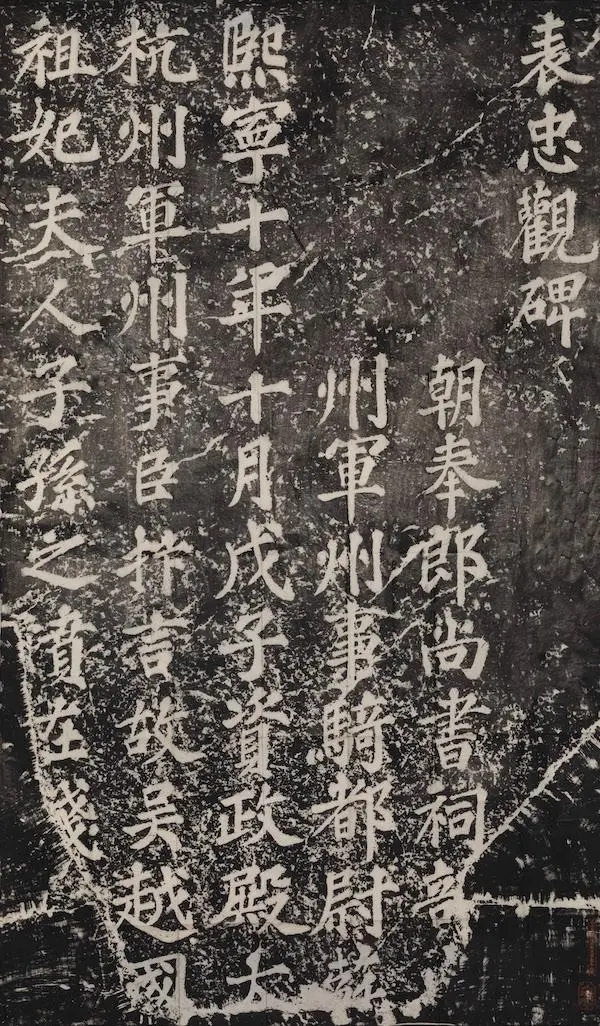 表忠觀碑
朝奉郎尚書祠部
州軍州事騎都尉蘇
熙寧十年十月戊子資政殿大
杭州軍州事臣抃言故吴越國
祖妃夫人子孫之墳在錢